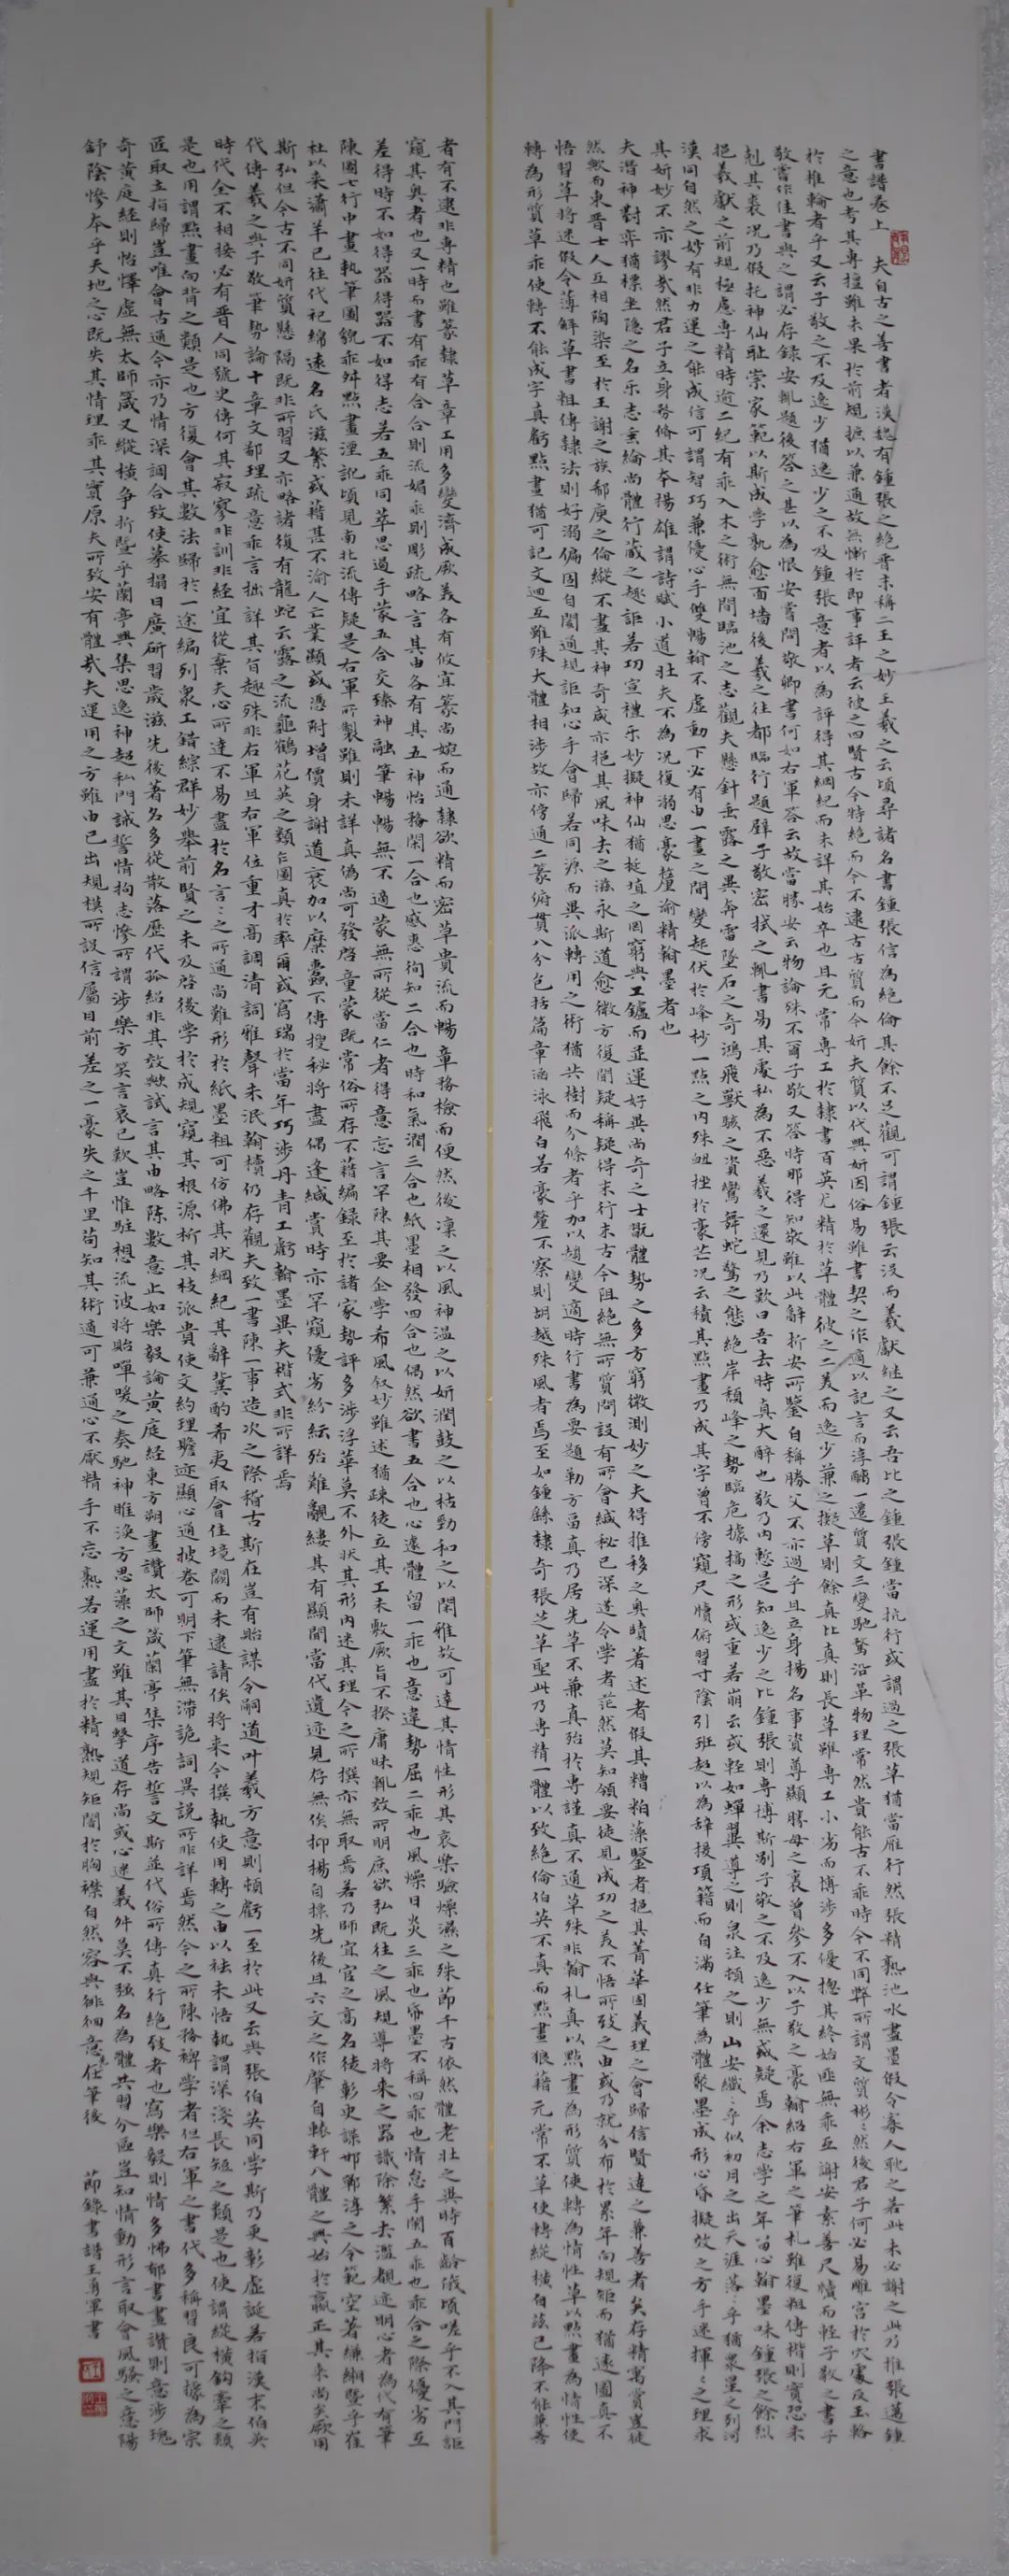 書譜卷上 夫自古之善書者漢魏有鍾張之絕晉末稱二王之妙王羲之云頃尋諸名書鍾張信為絕倫其餘不足觀可謂鍾張云沒而羲獻繼之又云吾比之鍾張鍾當抗行或謂過之張草猶當雁行然張精熟池水盡墨假令寡人耽之若此未必謝之此乃推張邁鍾
之意也考其專擅雖未果於前規摭以兼通故無慚於即事評者云彼之四賢古今特絕而今不逮古古質而今妍夫質以代興妍因俗易雖書契之作適以記言而淳醨一遷質文三變馳騖沿革物理常然貴能古不乖時今不同弊所謂文質彬〻然後君子何必易雕宮於穴處反玉輅
於椎輪者乎又云子敬之不及逸少猶逸少之不及鍾張意者以為評得其綱紀而未詳其始卒也且元常專工於隸書百英尤精於草體彼之二美而逸少兼之擬草則餘真比真則長草雖專工小劣而博涉多優摠其終始匪無乖互謝安素善尺牘而輕子敬之書子
敬嘗作佳書與之謂必存錄安輒題後答之甚以為恨安嘗問敬卿書何如右軍答云故當勝安云物論殊不爾子敬又答時那得知敬雖以此辭折安所鑒自稱勝父不亦過乎且立身揚名事資尊顯勝母之裏曾參不入以子敬之豪翰紹右軍之筆札雖復粗傳楷則實恐未
剋其裘况乃假托神仙恥崇家範以斯成學孰愈面墙後羲之往都臨行題壁子敬密拭之輒書易其處私為不惡羲之還見乃歎曰吾去時真大醉也敬乃內慙是知逸少之比鍾張則專博斯別子敬之不及逸少無或疑焉余志學之年留心翰墨味鍾張之餘烈
挹羲獻之前規極慮專精時逾二紀有乖入木之術無間臨池之志觀夫懸針垂露之異奔雷墜石之奇鴻飛獸駭之資鸞舞蛇驚之態絕岸頹峰之勢臨危據槁之形或重若崩云或輕如蟬翼導之則泉注頓之則山安纖〻乎似初月之出天涯落〻乎猶眾星之列河
漢同自然之妙有非力運之能成信可謂智巧兼優心手雙暢翰不虛動下必有由一畫之間變起伏於峰杪一點之內殊衄挫於豪芒况云積其點畫乃成其字曾不傍窺尺牘俯習寸陰引班超以為辭援項籍而自滿任筆為體聚墨成形心昏擬效之方手迷揮〻之理求
其妍妙不亦謬哉然君子立身務脩其本揚雄謂詩賦小道壯夫不為况復溺思豪釐淪精翰墨者也
夫潛神對弈猶標坐隱之名乐志垂綸尚體行藏之趣詎若功宣禮乐妙擬神仙猶挻埴之罔窮與工鑪而並運好異尚奇之士翫體勢之多方窮微測妙之夫得推移之奧賾著述者假其糟粕藻鑒者挹其菁華固義理之會歸信賢達之兼善者矣存精寓賞豈徒
然歟而東晉士人互相陶染至於王謝之族郗庾之倫縱不盡其神奇咸亦挹其風味去之滋永斯道愈微方復聞疑稱疑得末行末古今阻絕無所質問設有所會緘秘已深遂令學者茫然莫知領要徒見成功之美不悟所致之由或乃就分布於累年向規矩而猶遠圖真不
悟習草將迷假令薄解草書粗傳隸法則好溺偏固自閡通規詎知心手會歸若同源而異派轉用之術猶共樹而分條者乎加以趨變適時行書為要題勒方畐真乃居先草不兼真殆於專謹真不通草殊非翰札真以點畫為形質使轉為情性草以點畫為情性使
轉為形質草乖使轉不能成字真虧點畫猶可記文迴互雖殊大體相涉故亦傍通二篆俯貫八分包括篇章涵泳飛白若豪釐不察則胡越殊風者焉至如鍾繇隸奇張芝草聖此乃專精一體以致絕倫伯英不真而點畫狼藉元常不草使轉縱橫自茲已降不能兼善
者有不逮非專精也雖篆隸草章工用多變濟成厥美各有攸宜篆尚婉而通隸欲精而密草貴流而暢章務檢而便然後凜之以風神溫之以妍潤鼓之以枯勁和之以閑雅故可達其情性形其哀樂驗燥濕之殊節千古依然體老壯之異時百齡俄頃嗟乎不入其門詎
窺其奧者也又一時而書有乖有合合則流媚乖則彫疏略言其由各有其五神怡務閑一合也感惠徇知二合也時和氣潤三合也紙墨相發四合也偶然欲書五合也心遽體留一乖也意違勢屈二乖也風燥日炎三乖也紙墨不稱四乖也情怠手闌五乖也乖合之際優劣互
差得時不如得器得器不如得志若五乖同萃思遏手蒙五合交臻神融筆暢暢無不適蒙無所從當仁者得意忘言罕陳其要企學希風叙妙雖述猶疎徒立其工未敷厥旨不揆庸昧輒效所明庶欲弘既往之風規導將來之器識除繁去濫覩迹明心者為代有筆
陳圖七行中畫執筆圖貌乖舛點畫湮訛頃見南北流傳疑是右軍所製雖則未詳真偽尚可發啓童蒙既常俗所存不藉編錄至於諸家勢評多涉浮華莫不外狀其形內迷其理今之所撰亦無取焉若乃師宜官之高名徒彰史諜邯鄲淳之令範空著縑緗暨乎崔
杜以來蕭羊已往代祀綿遠名氏滋繁或藉甚不渝人亡業顯或憑附增價身謝道衰加以糜蠹不傳搜秘將盡偶逢緘賞時亦罕窺優劣紛紜殆難覼縷其有顯聞當代遺迹見存無俟抑揚自標先後且六文之作肇自軒轅八體之興始於嬴正其來尚矣厥用
斯弘但今古不同妍質懸隔既非所習又亦略諸復有龍蛇云露之流龜鶴花英之類乍圖真於率爾或寫瑞於當年巧涉丹青工虧翰墨異夫楷式非所詳焉
代傳羲之與子敬筆勢論十章文鄙理疏意乖言拙詳其旨趣殊非右軍且右軍位重才高調清詞雅聲未泯翰櫝仍存觀夫致一書陳一事造次之際稽古斯在豈有貽謀令嗣道叶義方章則頓虧一至於此又云與張伯英同學斯乃更彰虛誕若指漢末伯英
時代全不相接必有晉人同號史傳何其寂寥非訓非經宜從棄夫心所達不易盡於名言〻之所通尚難形於紙墨粗可仿佛其狀綱紀其辭冀酌希夷取會佳境闕而未逮請俟將來今撰執使用轉之由以祛未悟執謂深淺長短之類是也使謂縱橫鉤牽之類
是也用謂點畫向背之類是也方復會其數法歸於一途編列眾工錯綜群妙舉前賢之未及啓後學於成規窺其根源析其枝派貴使文約理贍迹顯心通披卷可明下筆無滯詭詞異說所非詳焉然今之所陳務裨學者但右軍之書代多稱習良可據為宗
匠取立指歸豈唯會古通今亦乃情深調合致使摹搨日廣研習歲滋先後著名多從散落歷代孤紹非其效歟試言其由略陳數意止如樂毅論黃庭經東方朔畫讚太師箴蘭亭集序告誓文斯並代俗所傳真行絕致者也寫樂毅則情多怫郁書畫讚則意涉瑰
奇黃庭經則怡懌虛無太師箴又縱橫爭折暨乎蘭亭興集思逸神超私門誡誓情拘志慘所謂涉樂方笑言哀已歎豈惟駐想流波將貽嘽喛之奏馳神睢渙方思藻之文雖其目擊道存尚或心迷義舛莫不強名為體共習分區豈知情動形言取會風騷之意陽
舒陰慘本乎天地之心既失其情理乖其實原夫所致安有體哉夫運用之方雖由己出規模所設信屬目前差之一豪失之千里苟知其術適可兼通心不厭精手不忘熟若運用盡於精熟規矩闇於胸襟自然容與徘徊意先筆後 節錄書譜王勇軍書